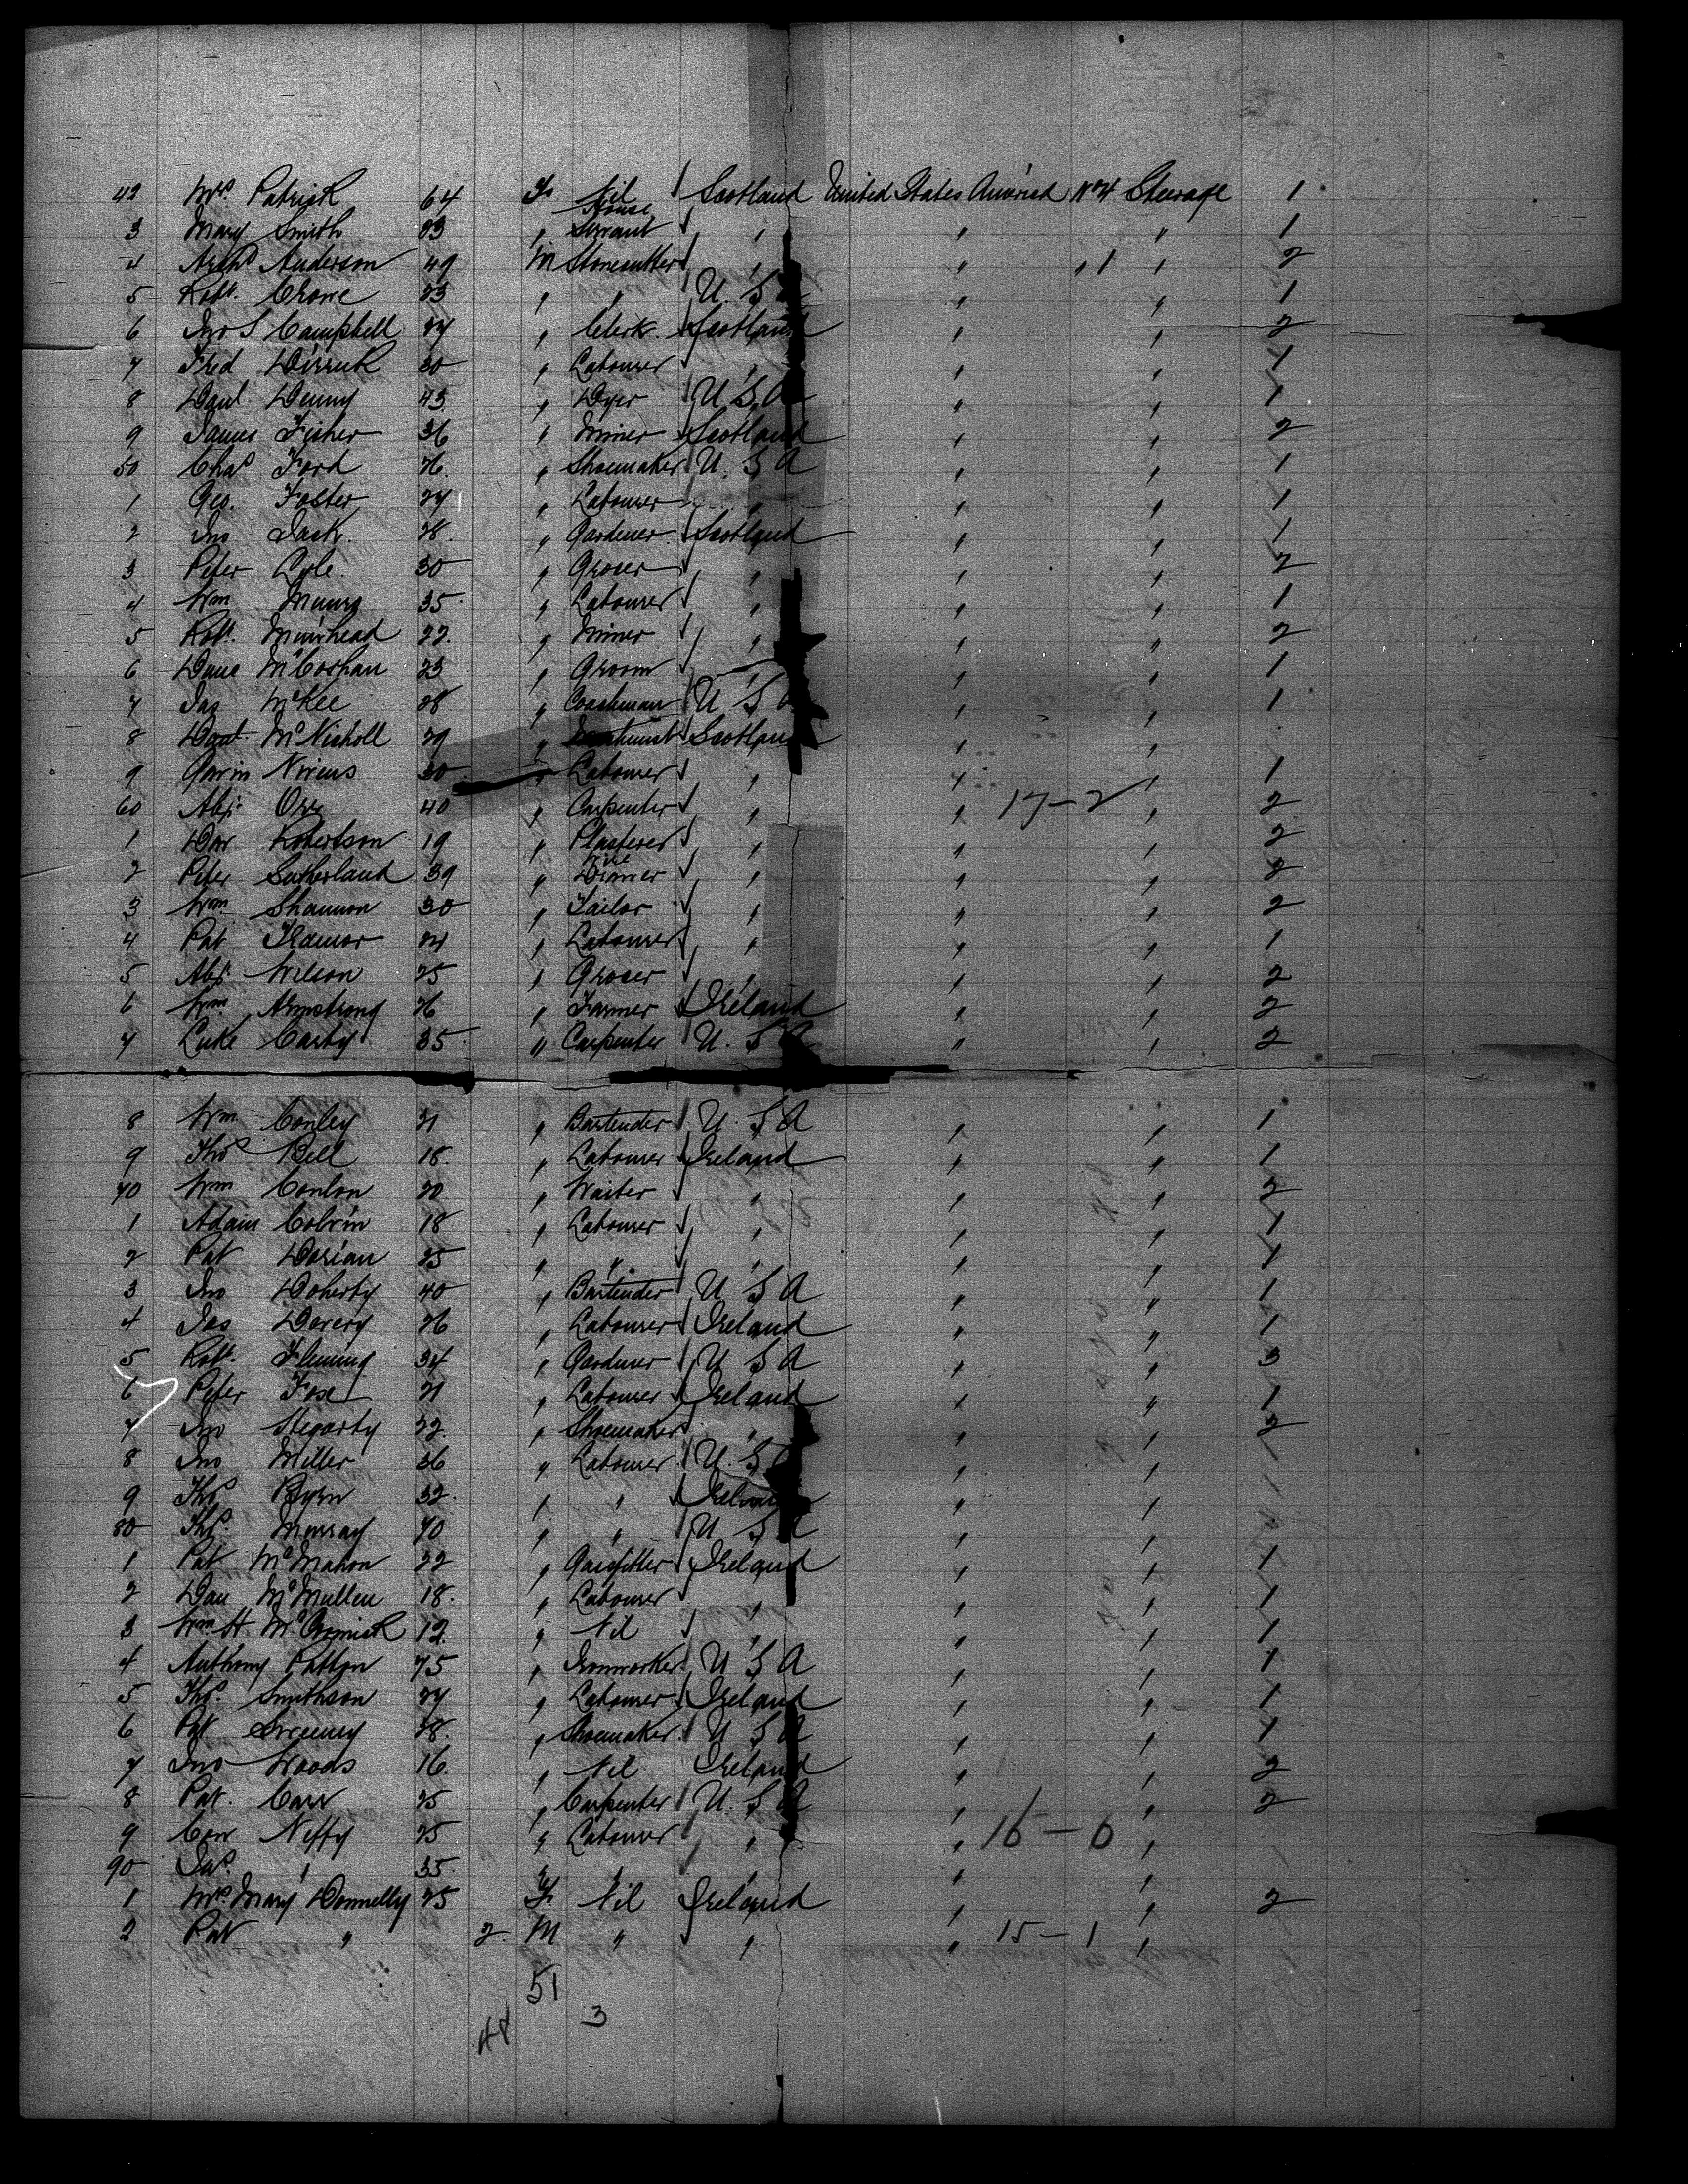 42 Mrs. Patrick 64 F Nil Scotland United States America No 4 Steerage 1
3 Mary Smith 23 " House Servant " " " 1
4 Archd Anderson 49 M Stonecutter " " " 1 " 2
5 Robt. Crone 23 " " U. S A " " 1
6 Jno S Campbell 27 " Clerk Scotland " " 2
7 Fred 30 " Labourer " " " 1
8 Danl Denny 43 " Dyer U S A " " 1
9 James Fisher 36 " Miner Scotland " " 2
50 Chas Ford 26 " Shoemaker U. S A " " 1
1 Geo. Foster 27 " Labourer " " " 1
2 Jno Jack 28 " Gardener Scotland " " 1
3 Peter Lyle 30 " Grocer " " " 2
4 Wm Munro 35 " Labourer " " " 1
5 Robt. Muirhead 22 " Miner " " " 2
6 McCorhan 23 " Groom " " " 1
7 Jas McKee 28 " Coachman U S A " " 1
8 McNicholl 29 " Scotland " "
9 Gavin Nivens 30 " Labourer " " " 1
60 Alex Orr 40 " Carpenter " " 17-2 " 2
1 Dav Robertson 19 " Plasterer " " " 2
2 Peter Sutherland 39 " Wire Drawer " " " 2
3 Wm Shannon 30 " Tailor " " " 2
4 Pat Trainor 24 " Labourer " " " 1
5 Alex Wilson 25 " Grocer " " " 2
6 Wm Armstrong 26 " Farmer Ireland " " 2
7 Luke Carty 35 " Carpenter U. S A " " 2
8 Wm Conley 21 " Bartender U. S A " " 1
9 Thos Bell 18 " Labourer Ireland " " 1
70 Wm Conlon 20 " Waiter " " " 2
1 Adam Colvin 18 " Labourer " " " 1
2 Pat Dorian 25 " " " " " 1
3 Jno Doherty 40 " Bartender U S A " " 1
4 Jas Devery 26 " Labourer Ireland " " 1
5 Robt. Fleming 34 " Gardener U S A " " 3
6 Peter Fox 21 " Labourer Ireland " " 1
7 Jno Hegarty 22 " Shoemaker " " " 2
8 Jno Miller 36 " Labourer U. S A " " 1
9 Thos Byrn 32 " " Ireland " " 1
80 Thos. Murray 40 " " U S A " "
1 Pat McMahon 22 " Gasfitter Ireland " " 1
2 Dan McMullen 18 " Labourer " " " 1
3 Wm H McCormick 12 " Nil " " " 1
4 Anthony Patton 45 " Ironworker U S A " " 1
5 Thos. Smithson 27 " Labourer Ireland " " 1
6 Pat Sweeney 28 " Shoemaker U S A " " 1
7 Jno Woods 16 " Nil Ireland " " 2
8 Pat. Carr 25 " Carpenter U. S A " " 2
9 Con Neffy 25 " Labourer " " 16-6 "
90 Jas. " 35 " " " " "
1 Mrs. Mary Donnelly 25 F Nil Ireland " " 2
2 Pat " 2 M " " " 15-1 "
51
3
48